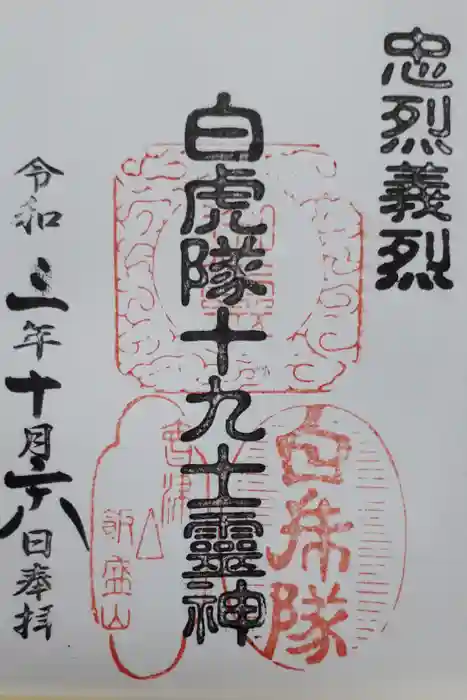 忠烈義烈
白虎隊十九士靈神
令和三年十月二十八日奉拝
會津
飯盛山
白虎隊